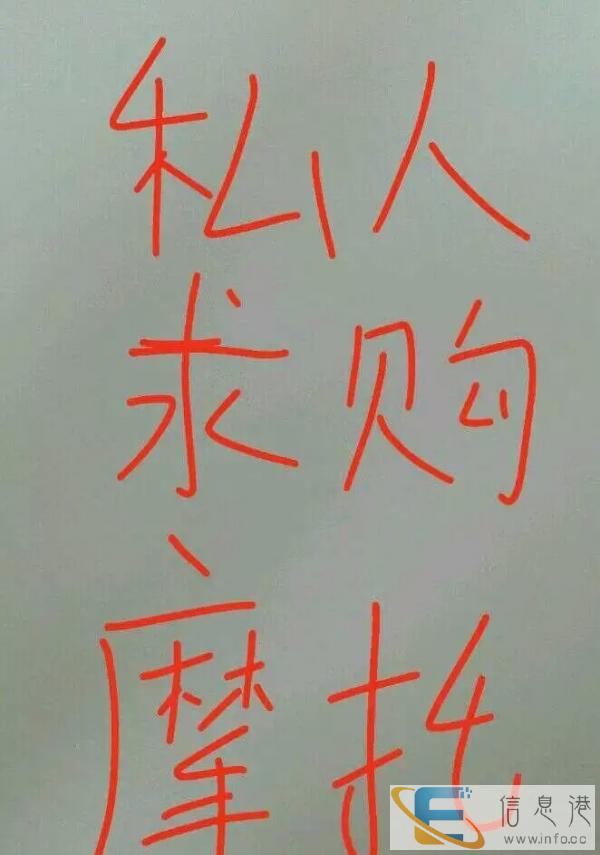 私人
求购
摩托
信息港
www.info.cc